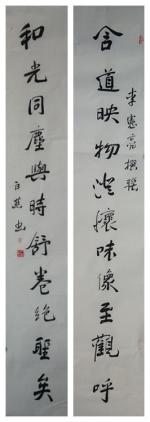 含道映物澄懷味像至觀呼
李憲亮撰聯
和光同塵與時舒卷絕聖矣